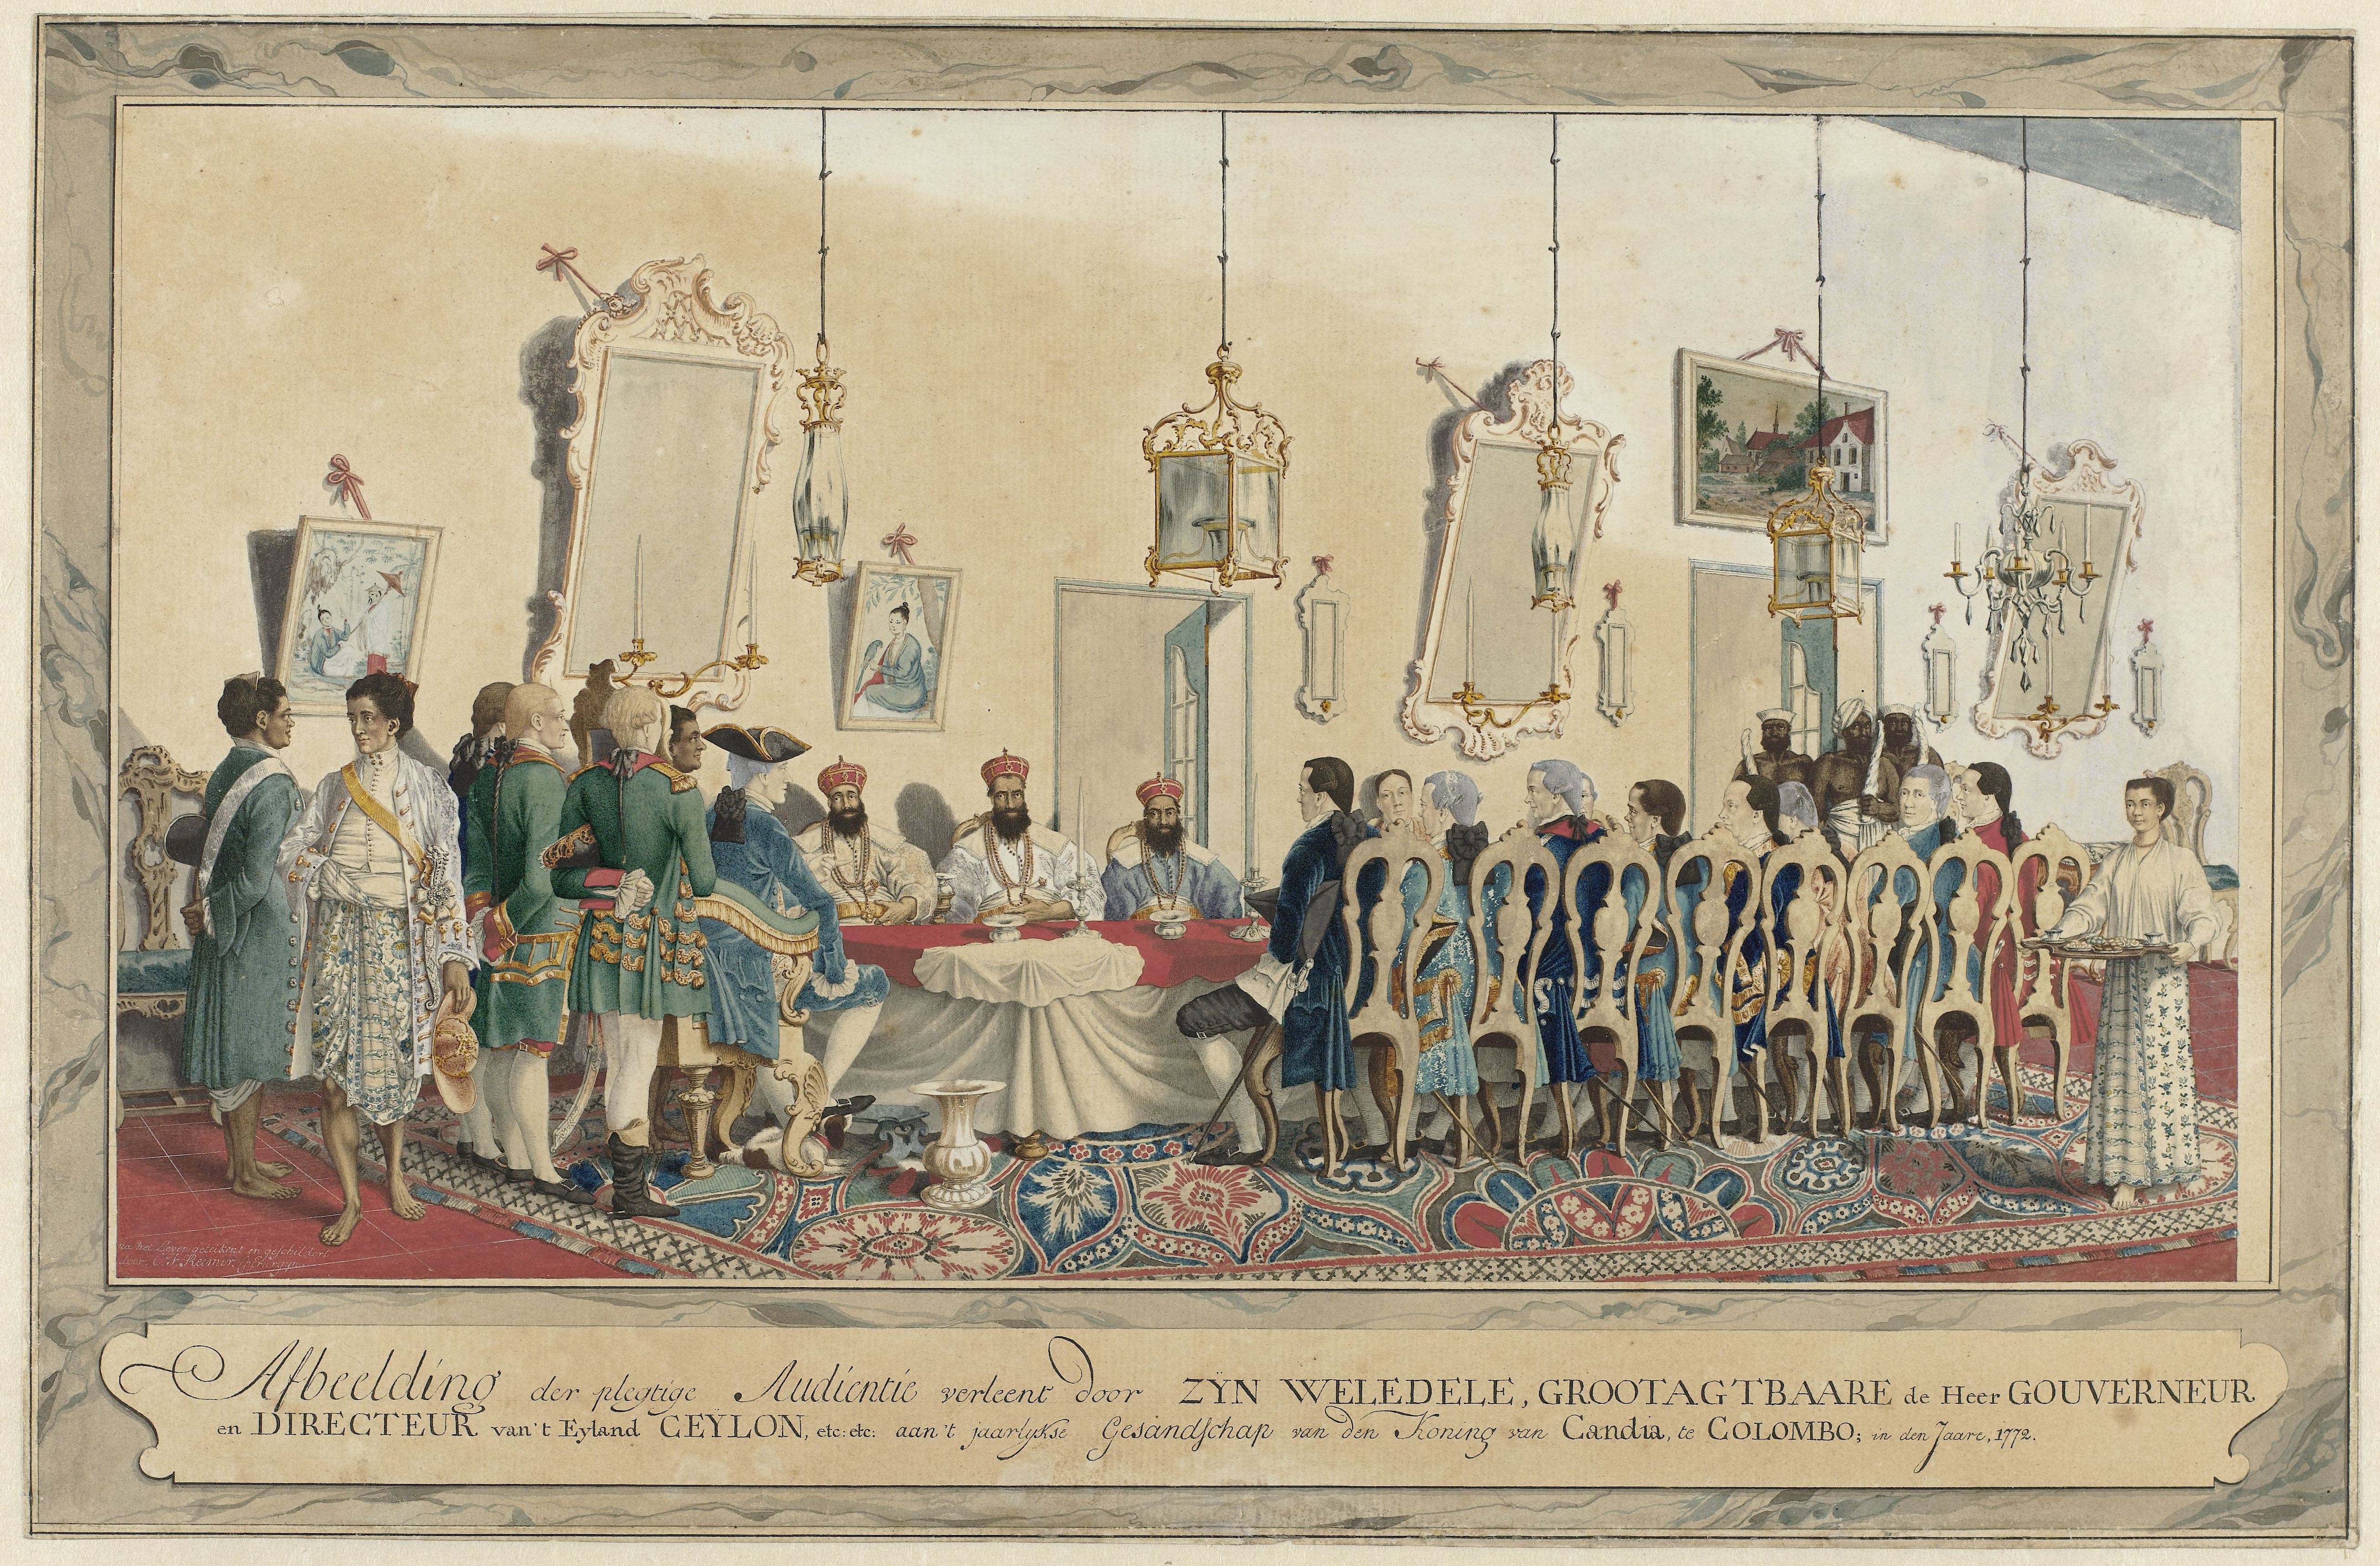 na het Leven getekent en geschildert
door C. F. Reimer
Afbeelding der plegtige Audientie verleent door ZŸN WELEDELE, GROOTAGTBAARE de Heer GOUVERNEUR
en DIRECTEUR van't Eyland CEŸLON, etc: etc: aan't jaarlykse Gesandschap van den Koning van Candia, te COLOMBO; in den Jaare, 1772.